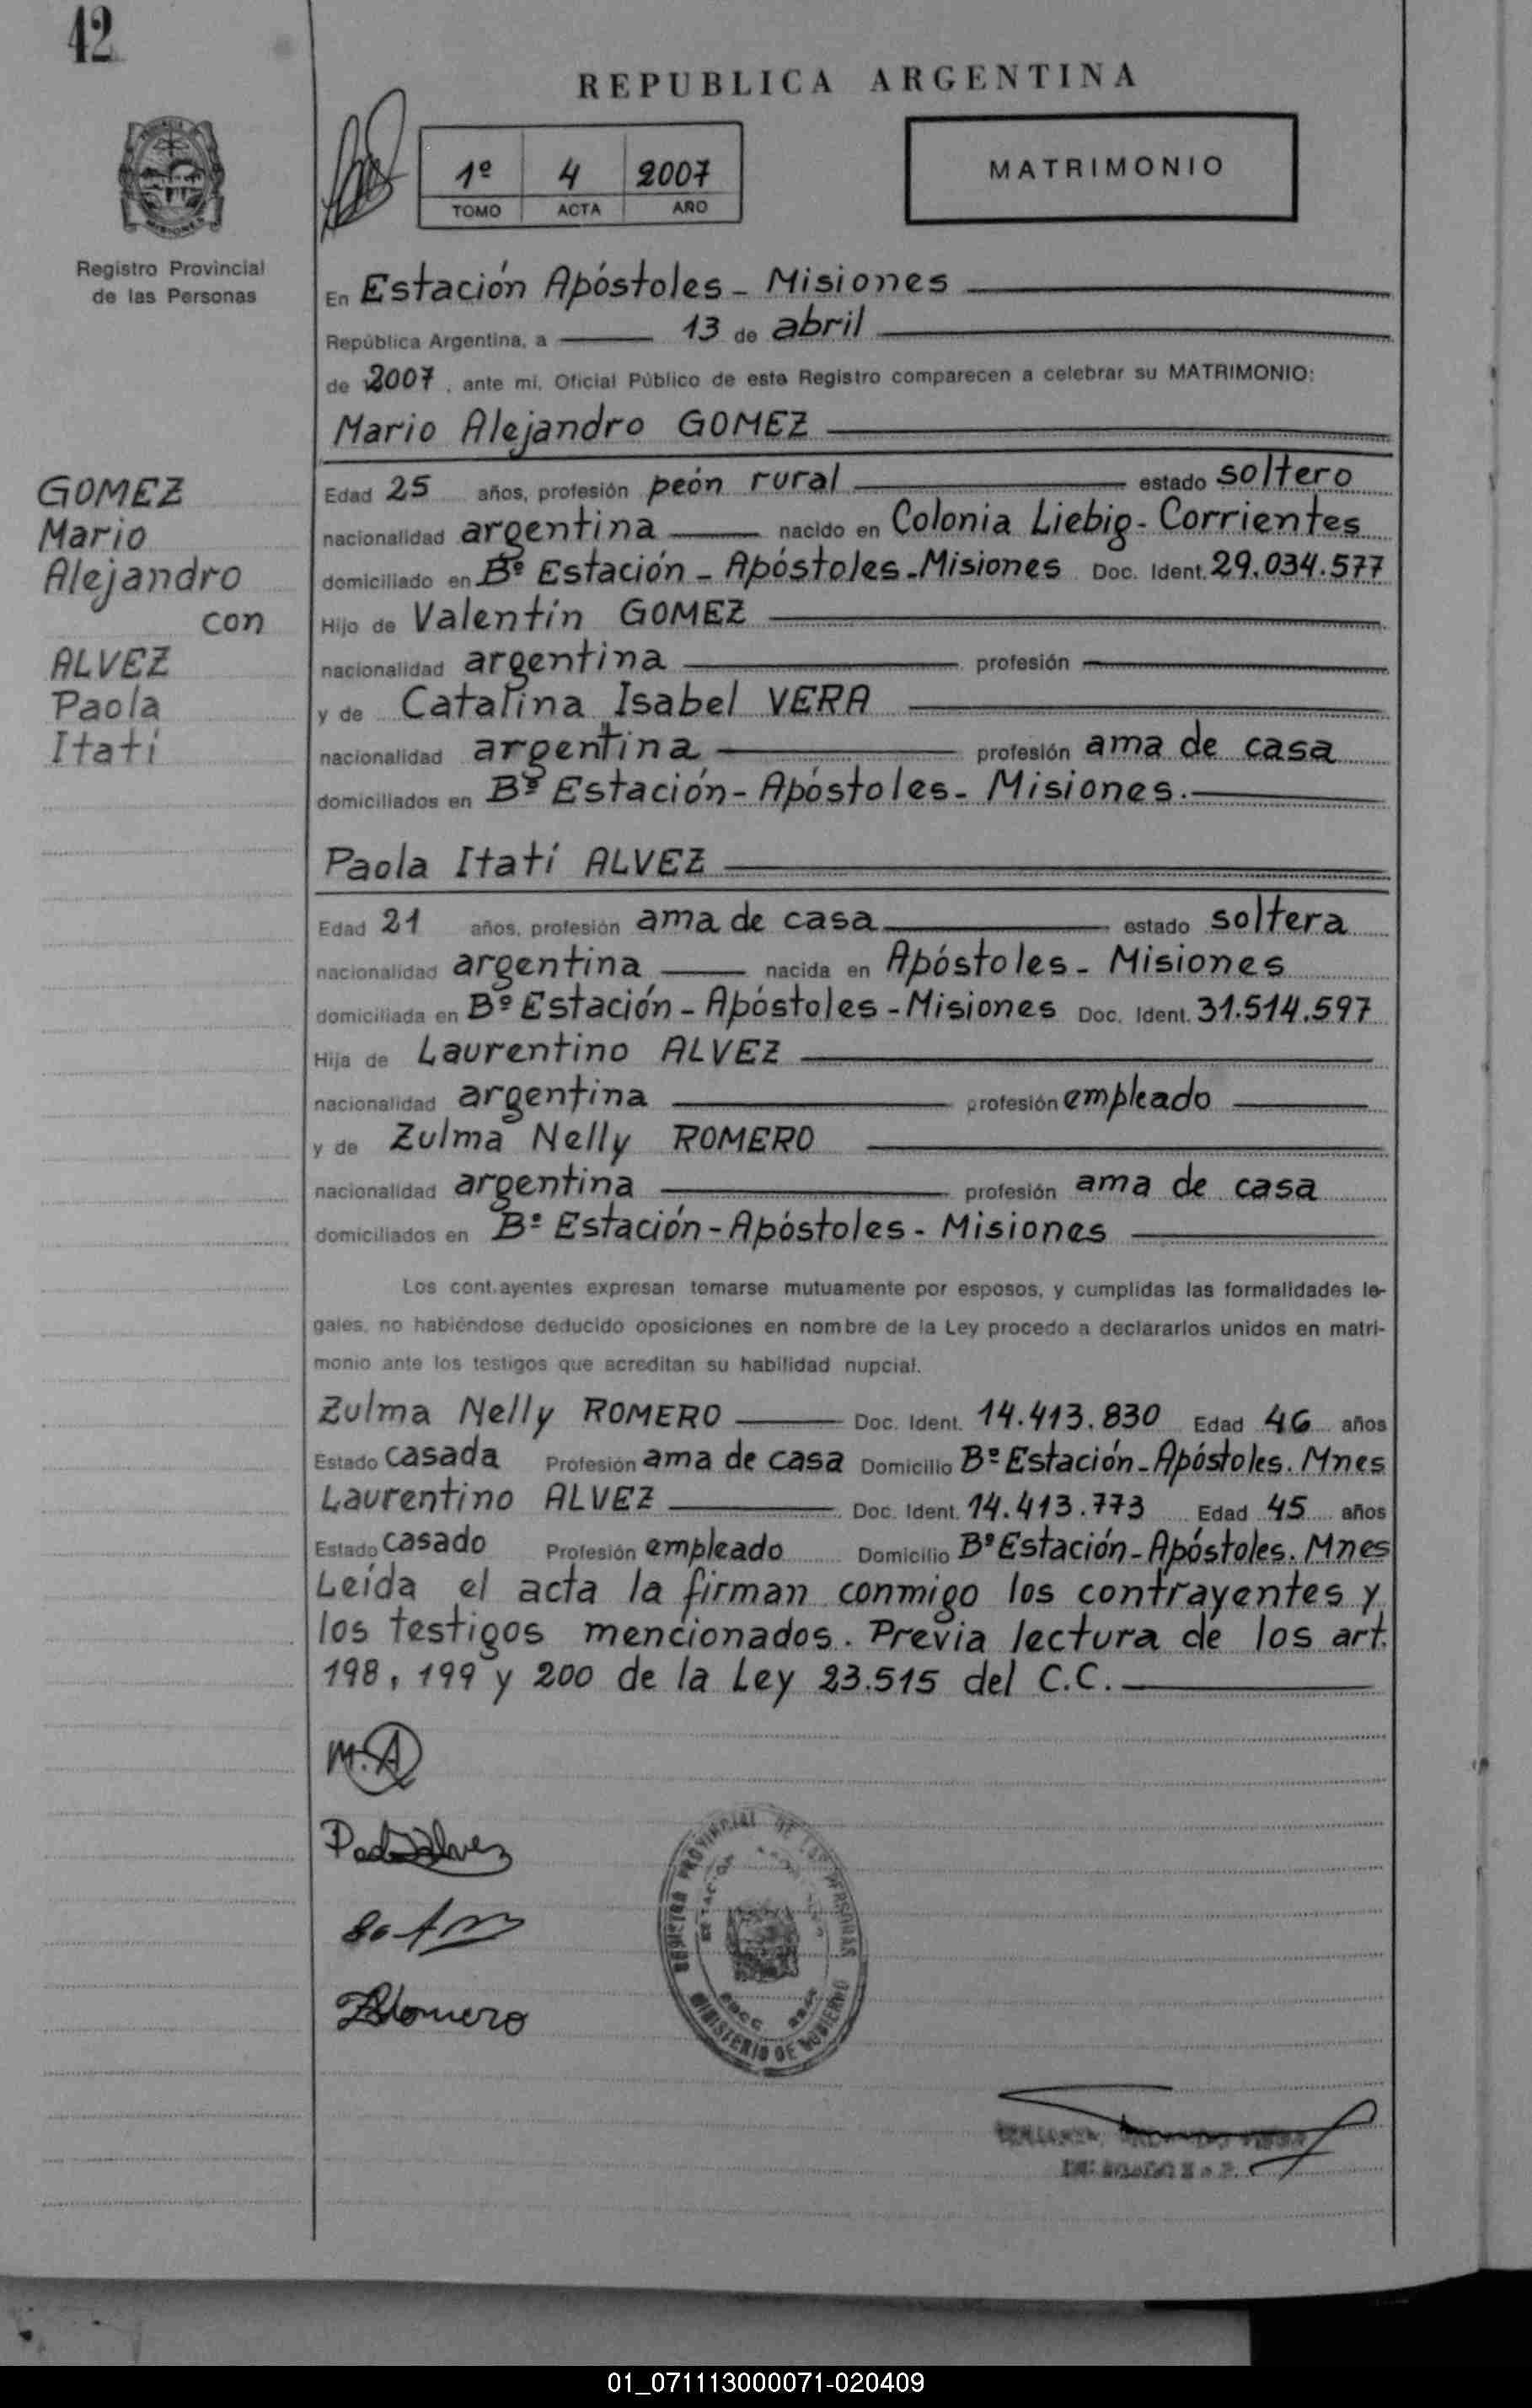 42
REPUBLICA ARGENTINA
1º 4 2007
TOMO ACTA AÑO
MATRIMONIO
Registro Provincial
de las Personas
En Estación Apóstoles - Misiones
República Argentina, a 13 de abril
de 2007, ante mi, Oficial Público de este Registro comparecen a celebrar su MATRIMONIO:
Mario Alejandro GOMEZ
GOMEZ
Mario
Alejandro
con
ALVEZ
Paola
Itatí
Edad 25 años, profesión peón rural estado soltero
nacionalidad argentina nacido en Colonia Liebig - Corrientes
domiciliado en Bº Estación - Apóstoles - Misiones Doc. Ident. 29.034.577
Hijo de Valentín GOMEZ
nacionalidad argentina profesión
y de Catalina Isabel VERA
nacionalidad argentina profesión ama de casa
domiciliados en Bº Estación - Apóstoles - Misiones.
Paola Itatí ALVEZ
Edad 21 años, profesión ama de casa estado soltera
nacionalidad argentina nacida en Apóstoles - Misiones
domiciliada en Bº Estación - Apóstoles - Misiones Doc. Ident. 31.514.597
Hija de Laurentino ALVEZ
nacionalidad argentina profesión empleado
y de Zulma Nelly ROMERO
nacionalidad argentina profesión ama de casa
domiciliados en Bº Estación - Apóstoles - Misiones
Los cont.ayentes expresan tomarse mutuamente por esposos, y cumplidas las formalidades le-
gales, no habiéndose deducido oposiciones en nombre de la Ley procedo a declararlos unidos en matri-
monio ante los testigos que acreditan su habilidad nupcial.
Zulma Nelly ROMERO Doc. Ident. 14.413.830 Edad 46 años
Estado casada Profesión ama de casa Domicilio Bº Estación - Apóstoles. Mnes
Laurentino ALVEZ Doc. Ident. 14.413.773 Edad 45 años
Estado casado Profesión empleado Domicilio Bº Estación - Apóstoles. Mnes
Leída el acta la firman conmigo los contrayentes y
los testigos mencionados. Previa lectura de los art.
198, 199 y 200 de la Ley 23.515 del C.C.
M.A
ZRomero
PROVINCIAL DE LAS PERSONAS
MINISTERIO DE GOBIERNO
01_071113000071-020409